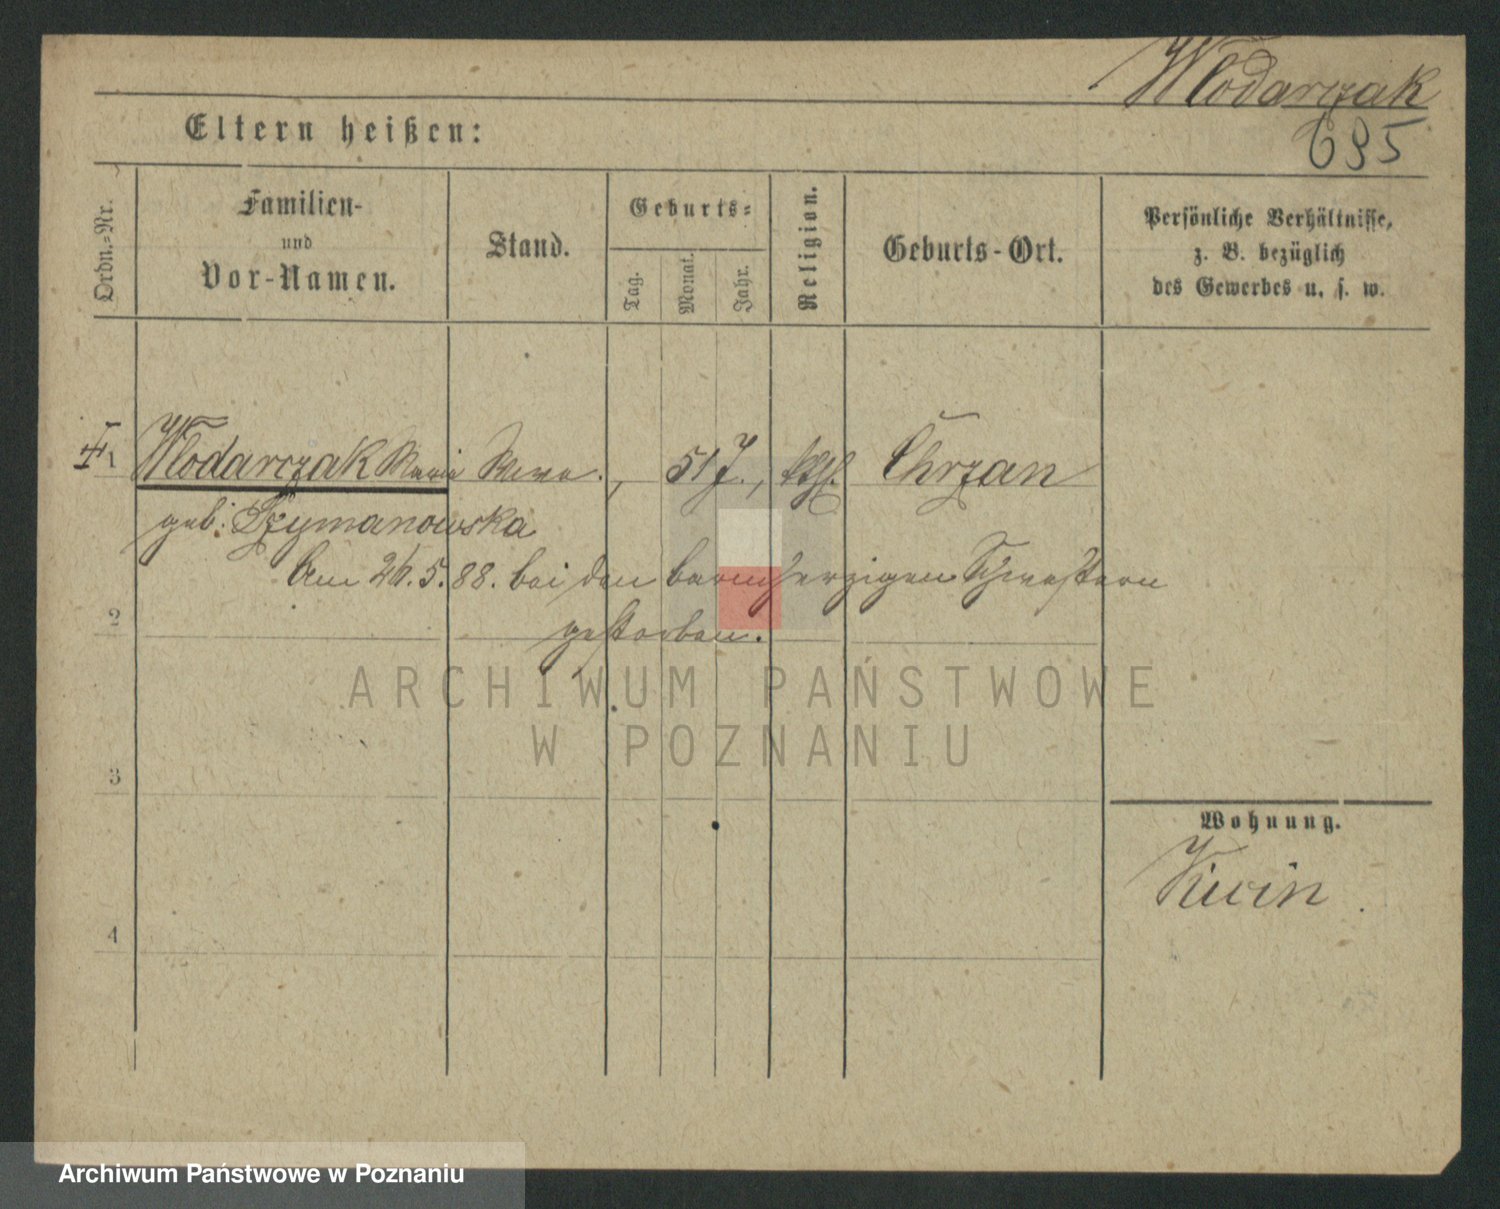 Wlodarczak
695
Eltern heißen:
Ordn.-Nr.
Familien-
und
Vor-Namen.
Stand.
Geburts-
Tag.
Monat.
Jahr.
Religion.
Geburts-Ort.
Persönliche Verhältnisse,
z. B. bezüglich
des Gewerbes u. s. w.
1 Wlodarczak Maria Wwe. 51 J., kth. Chrzan
geb. Szymanowska
Am 26.5.88. bei den barmherzigen Schwestern
2
gestorben.
ARCHIWUM PAŃSTWOWE
W POZNANIU
3
Wohnung.
Kicin
4
Archiwum Państwowe w Poznaniu